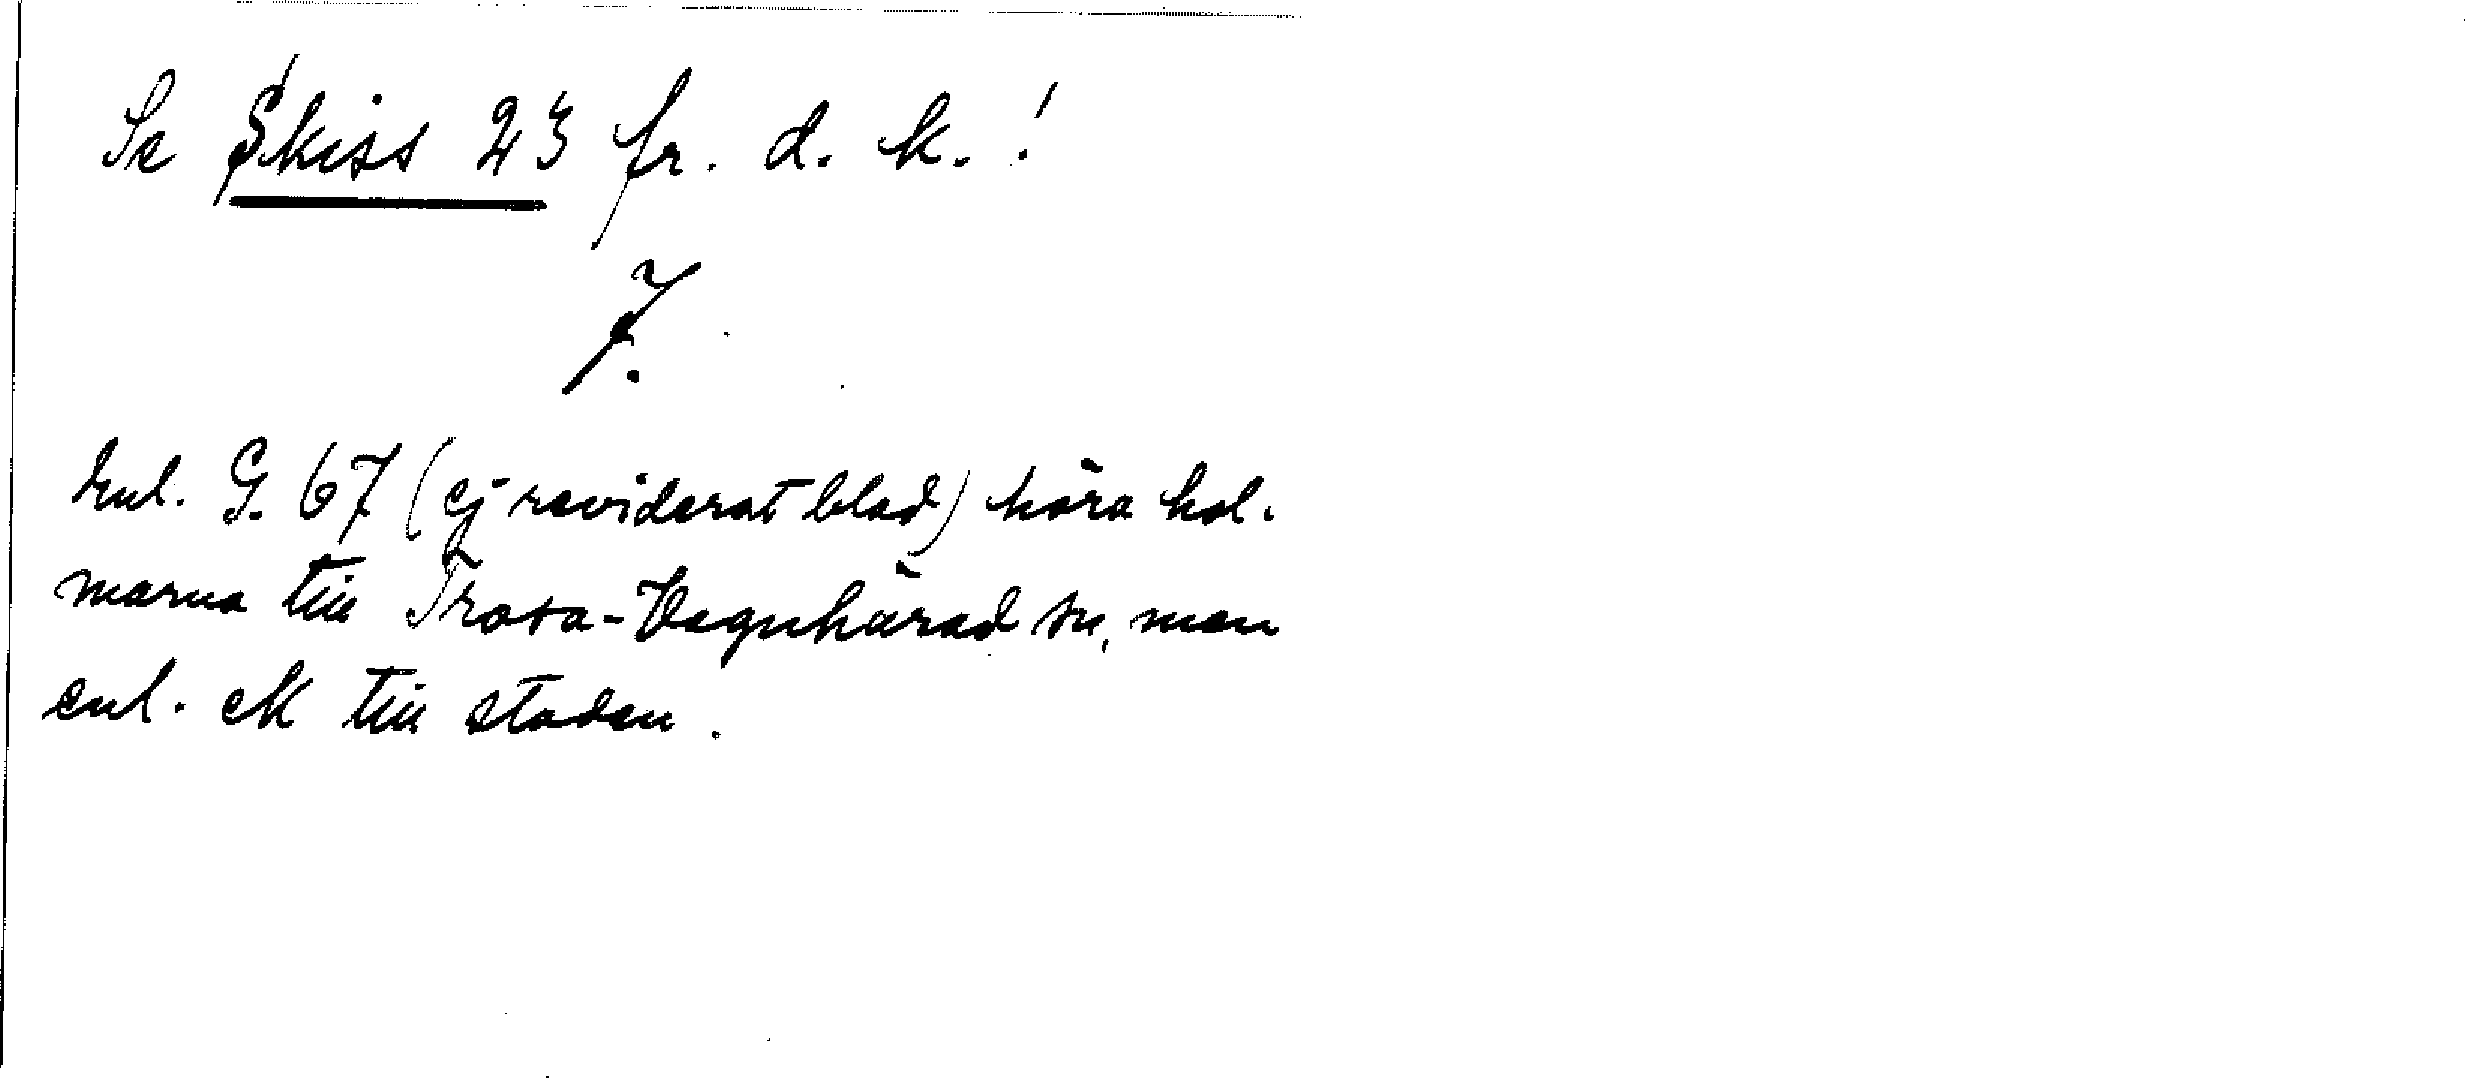 Se Skiss 23 fr. d. k.!
7.
Enl. G. 67 (ej reviderat blad) höra hol-
marna till Trosa-Vagnhärad sn, men
enl. ek till staden.